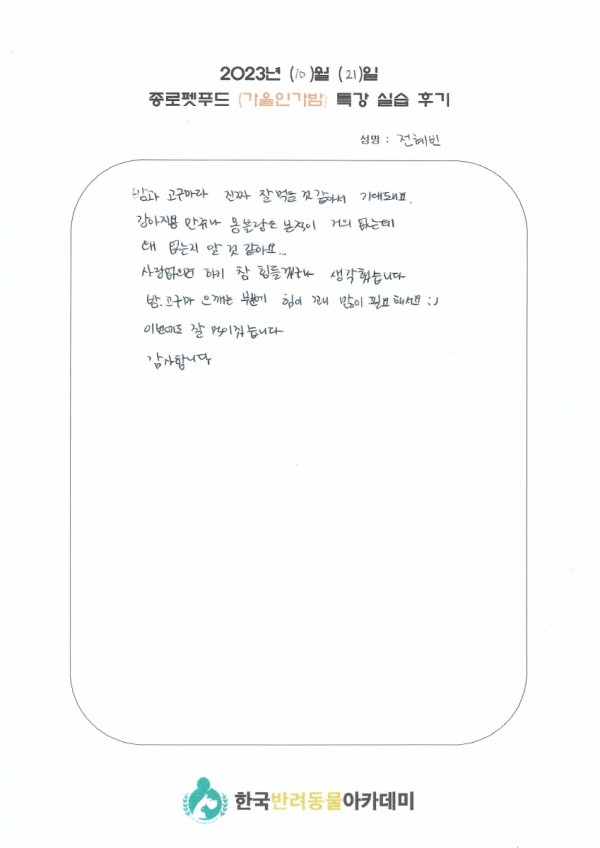 2023년 (10)월 (21)일
종로펫푸드 (가을인가밤) 특강 실습 후기
성명 : 전혜빈
밤과 고구마라 진짜 잘 먹을 것 같아서 기대돼요.
강아지용 만쥬나 몽블랑은 본적이 거의 없는데
왜 없는지 알 것 같아요...
사랑없으면 하기 참 힘들겠구나 생각했습니다
밤.고구마 으깨는 부분에 힘이 꽤 많이 필요해서요 :)
이번에도 잘 먹이겠습니다
감사합니다
한국반려동물아카데미